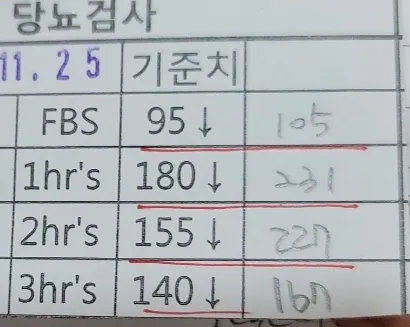 당뇨검사
11.25 기준치
FBS 95↓ 105
1hr's 180↓ 231
2hr's 155↓ 227
3hr's 140↓ 167